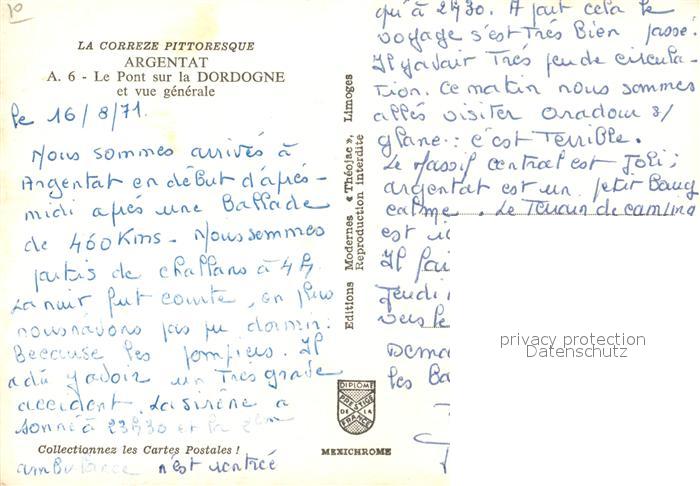 LA CORREZE PITTORESQUE
ARGENTAT
A. 6 - Le Pont sur la DORDOGNE
et vue générale
le 16/8/71.
Nous sommes arrivés à
Argentat en début d'après-
midi après une Ballade
de 460 Kms - Nous sommes
partis de challans à 4h
La nuit fut courte, en plus
nous n'avons pas pu dormir.
Because les pompiers. Il
a dû y avoir un Très grave
accident. La sirène a
sonné à 23h30 et la 2ème
Collectionnez les Cartes Postales !
ambulance n'est rentrée
Editions Modernes « Théojac », Limoges
Reproduction interdite
DIPLÔME
PRESTIGE
DE LA
FRANCE
MEXICHROME
qu'à 2h30. A part cela le
voyage s'est Très Bien passé.
Il y avait Très peu de circula-
tion. Ce matin nous sommes
allés visiter oradour s/
glane : c'est Terrible.
Le Massif central est Joli ;
argentat est un petit Bourg
calme. Le Terrain de camping
est
Il
Jeudi
vers le
les
privacy protection
Datenschutz